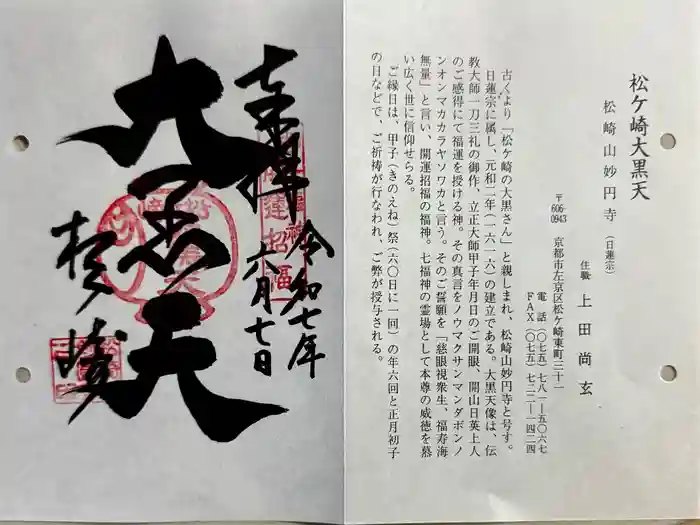 松ケ崎大黒天
松崎山妙円寺(日蓮宗)
住職 上田尚玄
〒606-0943 京都市左京区松ケ崎東町三十一
電話(〇七五)七八一―五〇六七
FAX(〇七五)七二二―一四二四
古くより「松ケ崎の大黒さん」と親しまれ、松崎山妙円寺と号す。
日蓮宗に属し、元和二年(一六一六)の建立である。大黒天像は、伝
教大師一刀三礼の御作、立正大師甲子年月日のご開眼、開山日英上人
のご感得にて福運を授ける神。その真言をノウマクサンマンダボンノ
ンオンマカカラヤソワカと言う。そのご誓願を「慈眼視衆生、福寿海
無量」と言い、開運招福の福神。七福神の霊場として本尊の威徳を慕
い広く世に信仰せらる。
ご縁日は、甲子(きのえね)祭(六〇日に一回)の年六回と正月初子
の日などで、ご祈祷が行なわれ、ご弊が授与される。
奉拝
令和七年
六月七日
大黒天
松ヶ崎